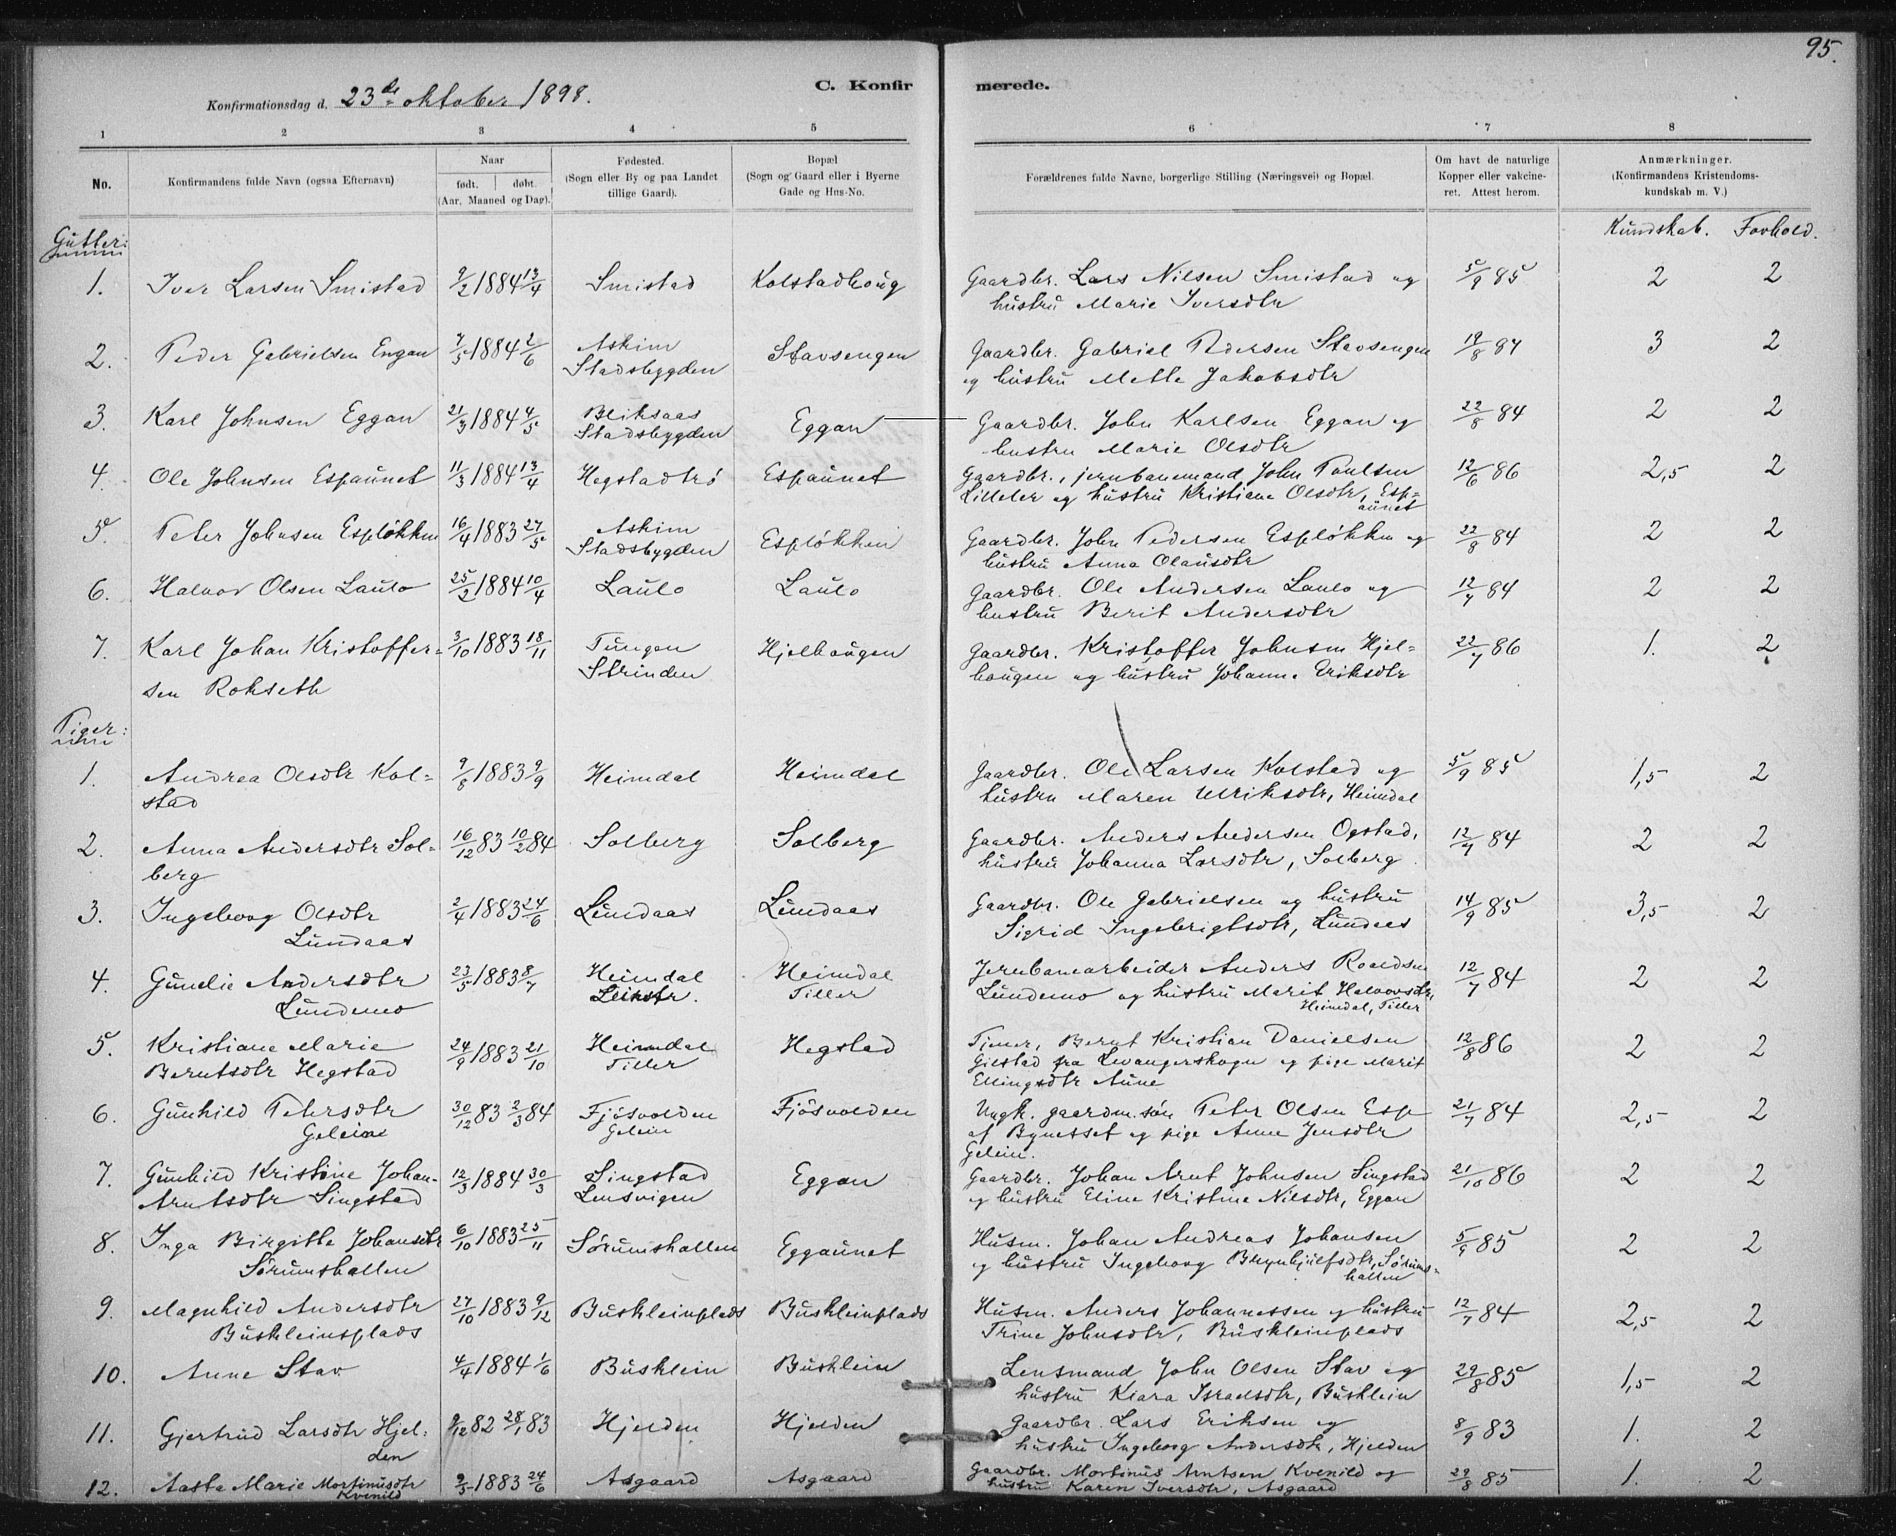 95.
Konfirmationsdag d. 23de oktober 1898.
C. Konfirmerede.
1 2 3 4 5 6 7 8
No.
Konfirmandens fulde Navn (ogsaa Efternavn)
Naar
født. | døbt.
(Aar, Maaned og Dag).
Fødested.
(Sogn eller By og paa Landet
tillige Gaard).
Bopæl
(Sogn og Gaard eller i Byerne
Gade og Hus-No.
Forældrenes fulde Navne, borgerlige Stilling (Næringsvei) og Bopæl.
Om havt de naturlige
Kopper eller vakcine-
ret. Attest herom.
Anmærkninger.
(Konfirmandens Kristendoms-
kundskab m. V.)
Kundskab. Forhold.
Gutter:
1. Iver Larsen Smistad 9/2 1884 13/4 Smistad Kolstadhoug Gaardbr. Lars Nilsen Smistad og 5/9 85 2 2
hustru Marie Iversdtr
2. Peder Gabrielsen Engan 7/5 1884 2/6 Askim Stavsengen Gaardbr. Gabriel Pedersen Stavsengen 19/8 84 3 2
Stadsbygden og hustru Mette Jakobsdtr
3. Karl Johnsen Eggan 21/3 1884 4/5 Bliksaas Eggan Gaardbr. John Karlsen Eggan og 22/8 84 2 2
Stadsbygden hustru Marie Olsdtr
4. Ole Johnsen Espaunet 11/3 1884 13/4 Hegstadtrø Espaunet Gaardbr., jernbanemand John Paulsen 12/6 86 2,5 2
Lilleler og hustru Kristiane Olsdtr, Esp=
aunet
5. Peter Johnsen Espløkken 16/4 1883 27/5 Askim Espløkken Gaardbr. John Pedersen Espløkken og 22/8 84 2 2
Stadsbygden hustru Anna Olausdtr
6. Halvor Olsen Laulo 25/2 1884 10/4 Laulo Laulo Gaardbr. Ole Andersen Laulo og 12/7 84 2 2
hustru Berit Andersdtr
7. Karl Johan Kristoffer= 3/10 1883 18/11 Tungen Hjelhaugen Gaardbr. Kristoffer Johnsen Hjel= 22/7 86 1. 2
sen Rokseth Strinden haugen og hustru Johanna Eriksdtr
Piger:
1. Andrea Olsdtr Kol= 9/8 1883 9/9 Heimdal Heimdal Gaardbr. Ole Larsen Kolstad og 5/9 85 1,5 2
stad hustru Maren Ulriksdtr, Heimdal
2. Anna Andersdtr Sol= 16/12 83 10/2 84 Solberg Solberg Gaardbr. Anders Andersen Ogstad, 12/7 84 2 2
berg hustru Johanna Larsdtr, Solberg
3. Ingeborg Olsdtr 2/4 1883 24/6 Lundaas Lundaas Gaardbr. Ole Gabrielsen og hustru 14/9 85 3,5 2
Lundaas Sigrid Ingebrigtsdtr, Lundaas
4. Gunelie Andersdtr 23/5 1883 8/7 Heimdal Heimdal Jernbanearbeider Anders Roaldsen 12/7 84 2 2
Lundemo Leinstr. Tiller Lundemo og hustru Marit Halvorsdtr,
Heimdal, Tiller
5. Kristiane Marie 24/9 1883 21/10 Heimdal Hegstad Tjener, Bernt Kristian Danielsen 12/8 86 2 2
Berntsdtr Hegstad Tiller Gilstad fra Levangerskogn og pige Marit
Ellingsdtr Aune
6. Gunhild Petersdtr 30/12 83 2/3 84 Fjösvolden Fjösvolden Ungk. gaardm. søn Peter Olsen Esp 21/7 84 2,5 2
Geleine Gelein af Bynesset og pige Anne Jensdtr
Gelein.
7. Gunhild Kristine Johan- 12/3 1884 30/3 Singstad Eggan Gaardbr. Johan Arnt Johnsen Singstad 21/10 86 2 2
Arntsdtr Singstad Lensvigen og hustru Eline Kristine Nilsdtr, Eggan
8. Inga Birgitte Johansdtr 6/10 1883 25/11 Sørumshallen Eggaunet Husm. Johan Andreas Johansen 5/9 85 2 2
Sørumshallen og hustru Ingeborg Brynhjulfsdtr, Sørums=
hallen
9. Magnhild Andersdtr 27/10 1883 9/12 Buskleinplads Buskleinplads Husm. Anders Johannessen og hustru 12/7 84 2,5 2
Buskleinsplads Trine Johnsdtr, Buskleinplads
10. Anne Stav 4/4 1884 1/6 Busklein Busklein Lensmand John Olsen Stav og 29/8 85 1,5 2
hustru Klara Israelsdtr, Busklein
11. Gjertrud Larsdtr Hjel- 9/12 82 28/1 83 Hjelden Hjelden Gaardbr. Lars Eriksen og 8/9 83 1. 2
den hustru Ingeborg Andersdtr, Hjelden
12. Aasta Marie Mortinusdtr 9/5 1883 24/6 Asgaard Asgaard Gaardbr. Mortinus Arntsen Kvenild og 29/8 85 1. 2
Kvenild hustru Karen Iversdtr, Asgaard